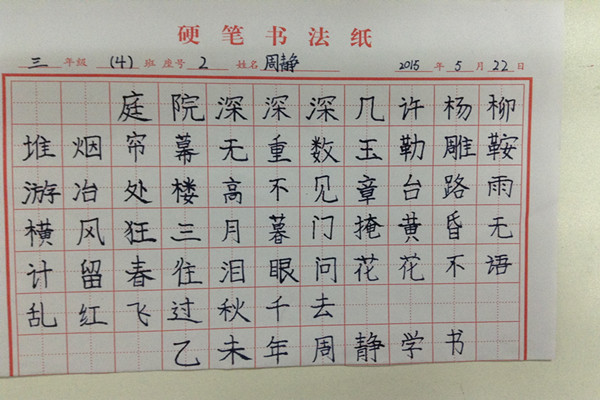 硬笔书法纸
三 年级 (4) 班 座号 2 姓名 周静 2015 年 5 月 22 日
庭院深深深几许杨柳
堆烟帘幕无重数玉勒雕鞍
游冶处楼高不见章台路雨
横风狂三月暮门掩黄昏无
计留春住泪眼问花花不语
乱红飞过秋千去
乙未年周静学书